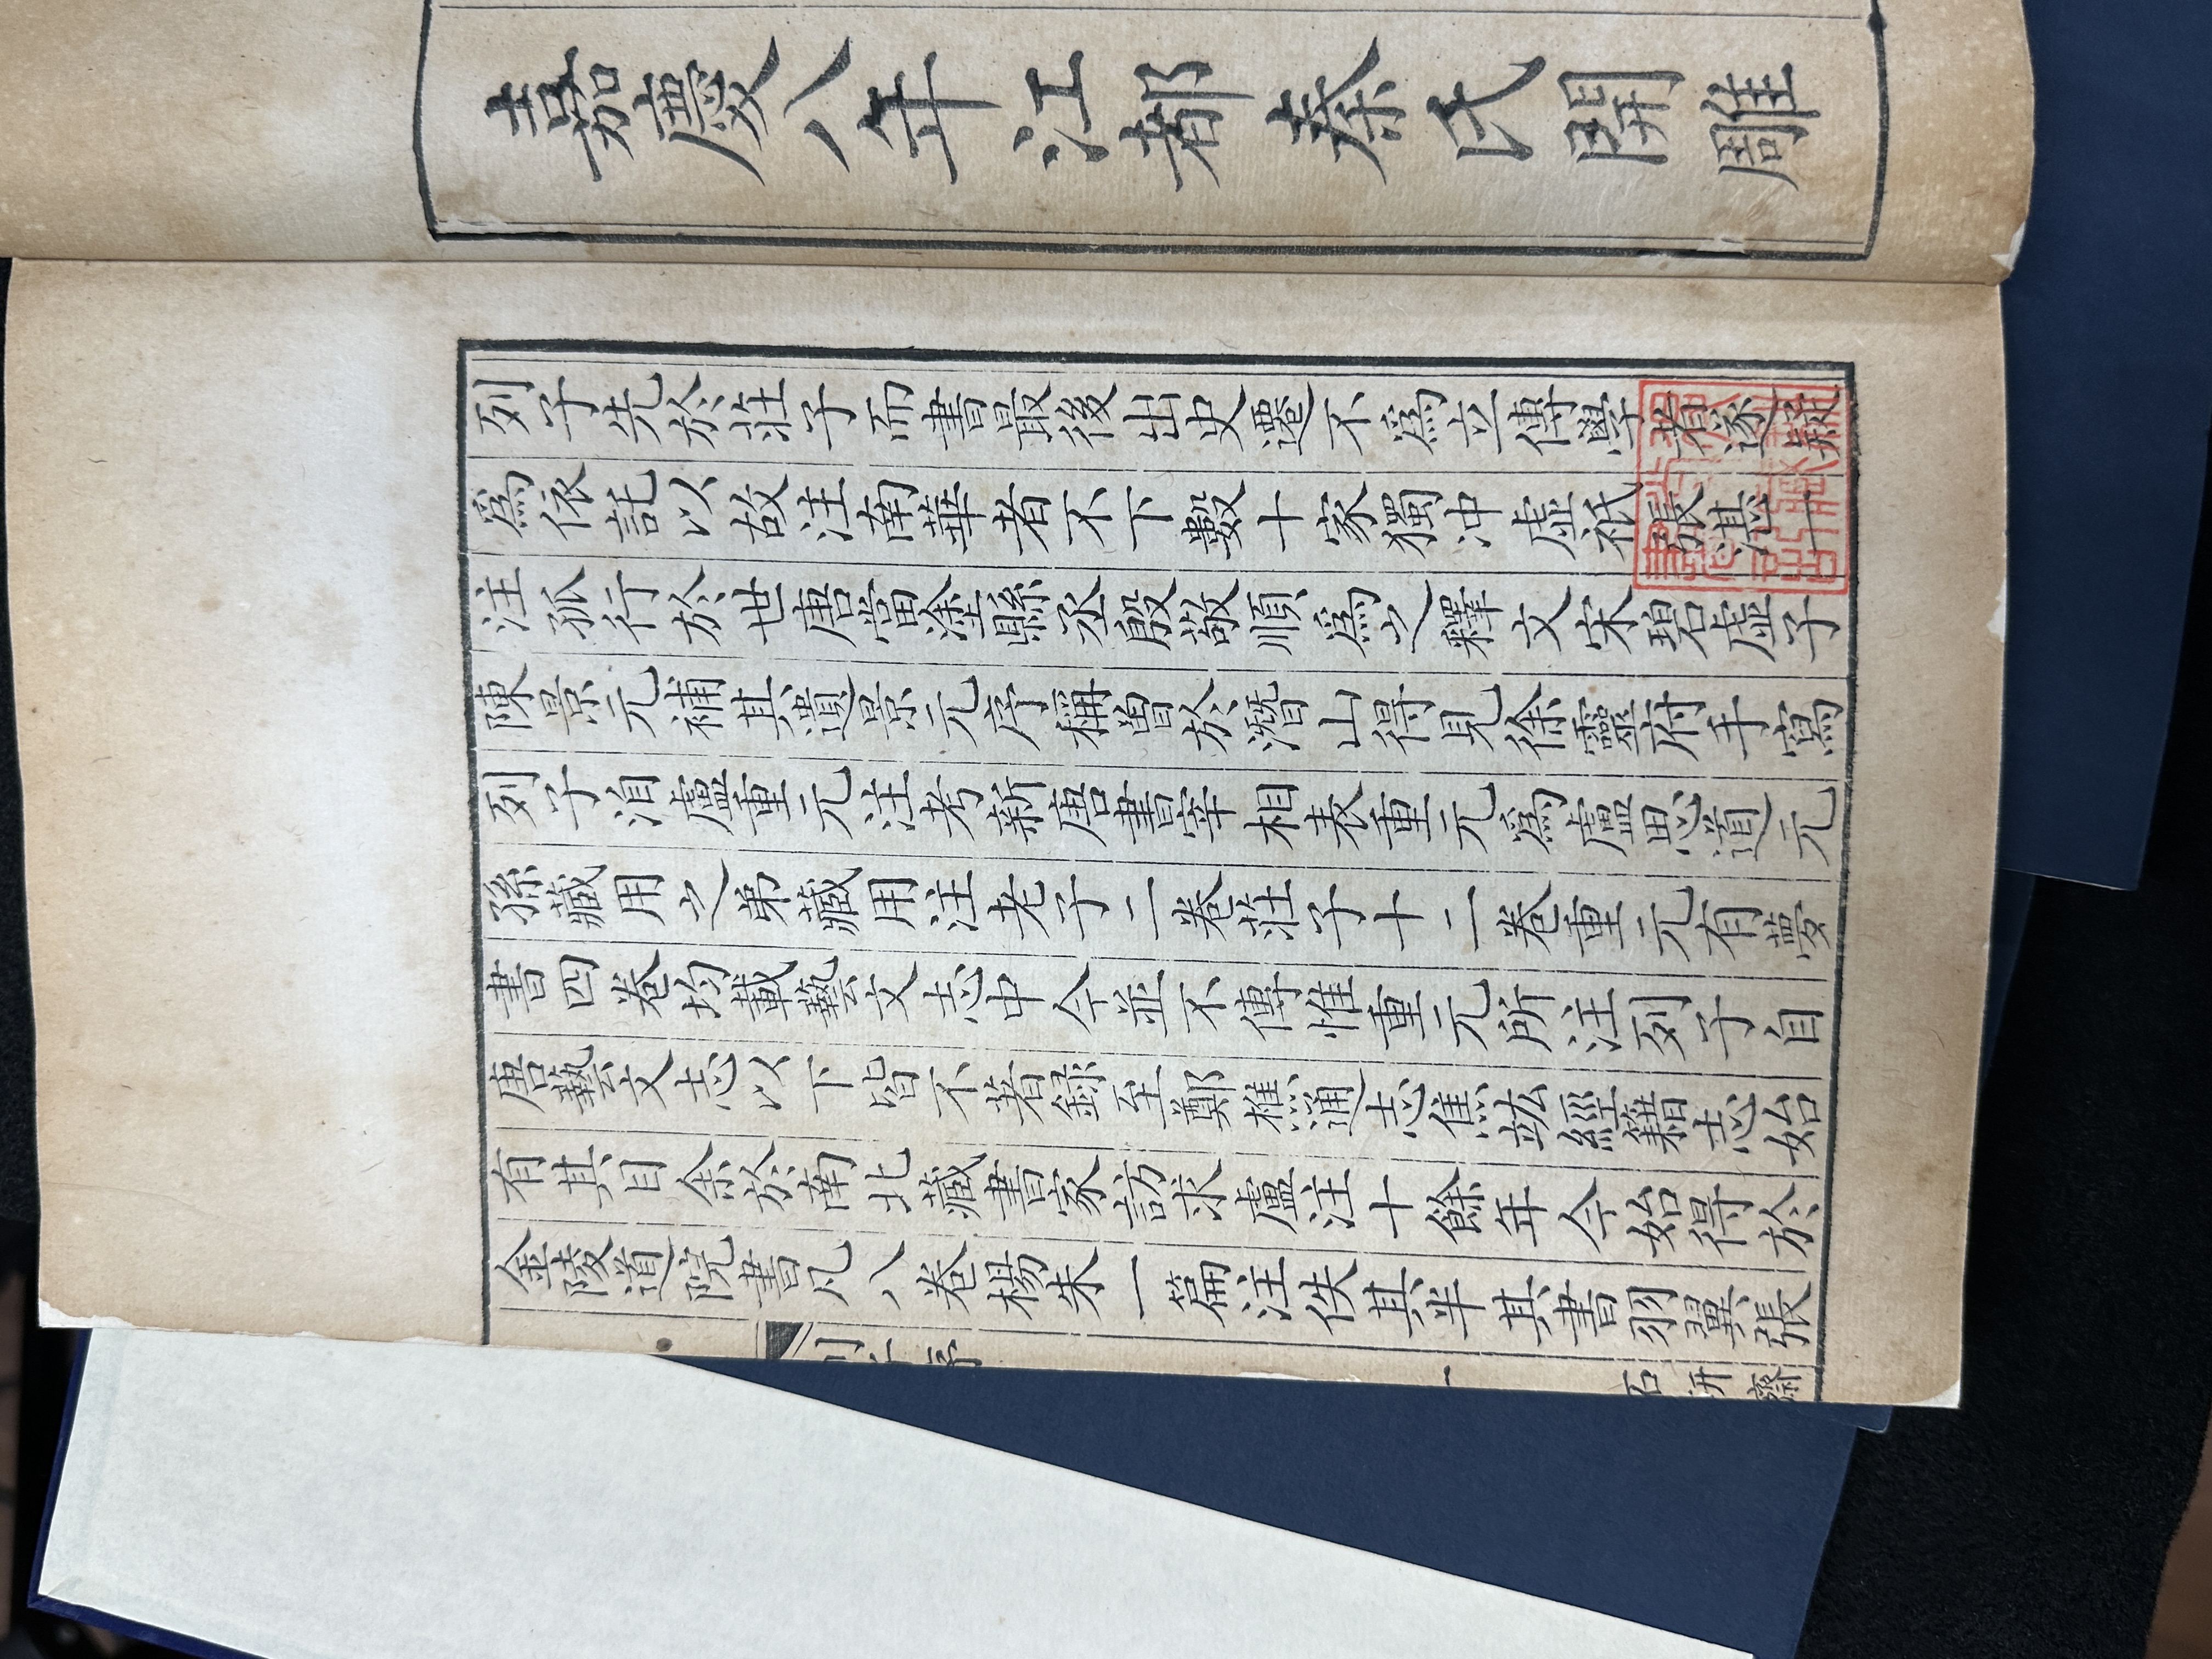 嘉慶八年江都秦氏開雕
列子先於莊子而書最後出史遷不爲立傳學者遂疑
爲依託以故注南華者不下數十家獨沖虛祇張湛一
注孤行於世唐當塗縣丞殷敬順爲之釋文宋碧虛子
陳景元補其遺景元序稱曾於潛山得見徐靈府手寫
列子洎盧重元注考新唐書宰相表重元爲盧思道元
孫藏用之弟藏用注老子二卷莊子十二卷重元有夢
書四卷均載藝文志中今並不傳惟重元所注列子自
唐藝文志以下皆不著錄至鄭樵通志焦竑經籍志始
有其目余於南北藏書家訪求盧注十餘年今始得於
金陵道院書凡八卷楊朱一篇注佚其半其書羽翼張
列子序 一 石研齋